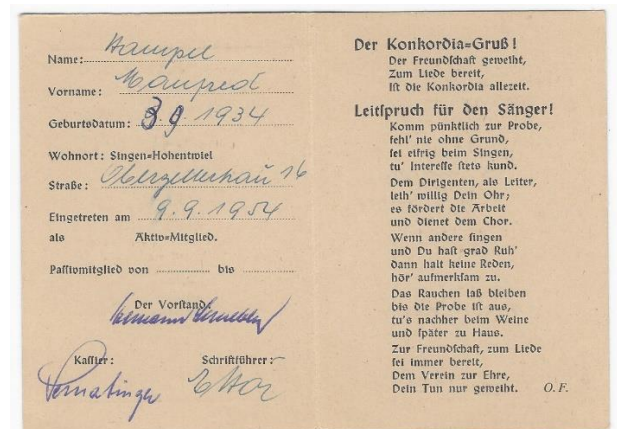 Name: Hampel
Vorname: Manfred
Geburtsdatum: 3.9.1934
Wohnort: Singen=Hohentwiel
Straße: 16
Eingetreten am 9.9.1954
als Aktiv=Mitglied.
Passivmitglied von bis
Der Vorstand:
Kassier: Schriftführer:
Der Konkordia=Gruß!
Der Freundschaft geweiht,
Zum Liede bereit,
Ist die Konkordia allezeit.
Leitspruch für den Sänger!
Komm pünktlich zur Probe,
fehl' nie ohne Grund,
sei eifrig beim Singen,
tu' Interesse stets kund.
Dem Dirigenten, als Leiter,
leih' willig Dein Ohr;
es fördert die Arbeit
und dienet dem Chor.
Wenn andere singen
und Du hast grad Ruh'
dann halt keine Reden,
hör' aufmerksam zu.
Das Rauchen laß bleiben
bis die Probe ist aus,
tu's nachher beim Weine
und später zu Haus.
Zur Freundschaft, zum Liede
sei immer bereit,
Dem Verein zur Ehre,
Dein Tun nur geweiht. O. F.